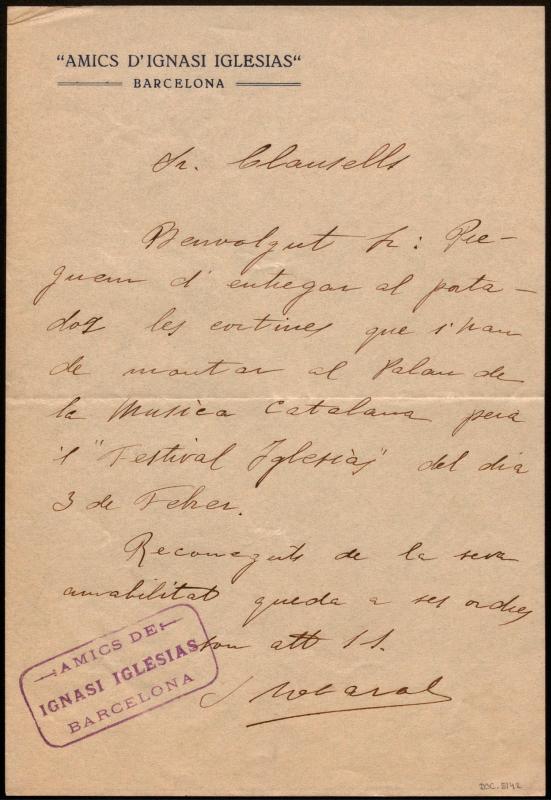 "AMICS D'IGNASI IGLESIAS"
BARCELONA
Sr. Clausells
Benvolgut Sr: Pre-
guem d'entregar al porta-
dor les cortines que s'han
de montar al Palau de
la Musica Catalana pera
'l "Festival Iglesias" del dia
3 de Febrer.
Reconeguts de la seva
amabilitat queda a ses ordres
son att S S.
AMICS DE
IGNASI IGLESIAS
BARCELONA
DOC. 5142